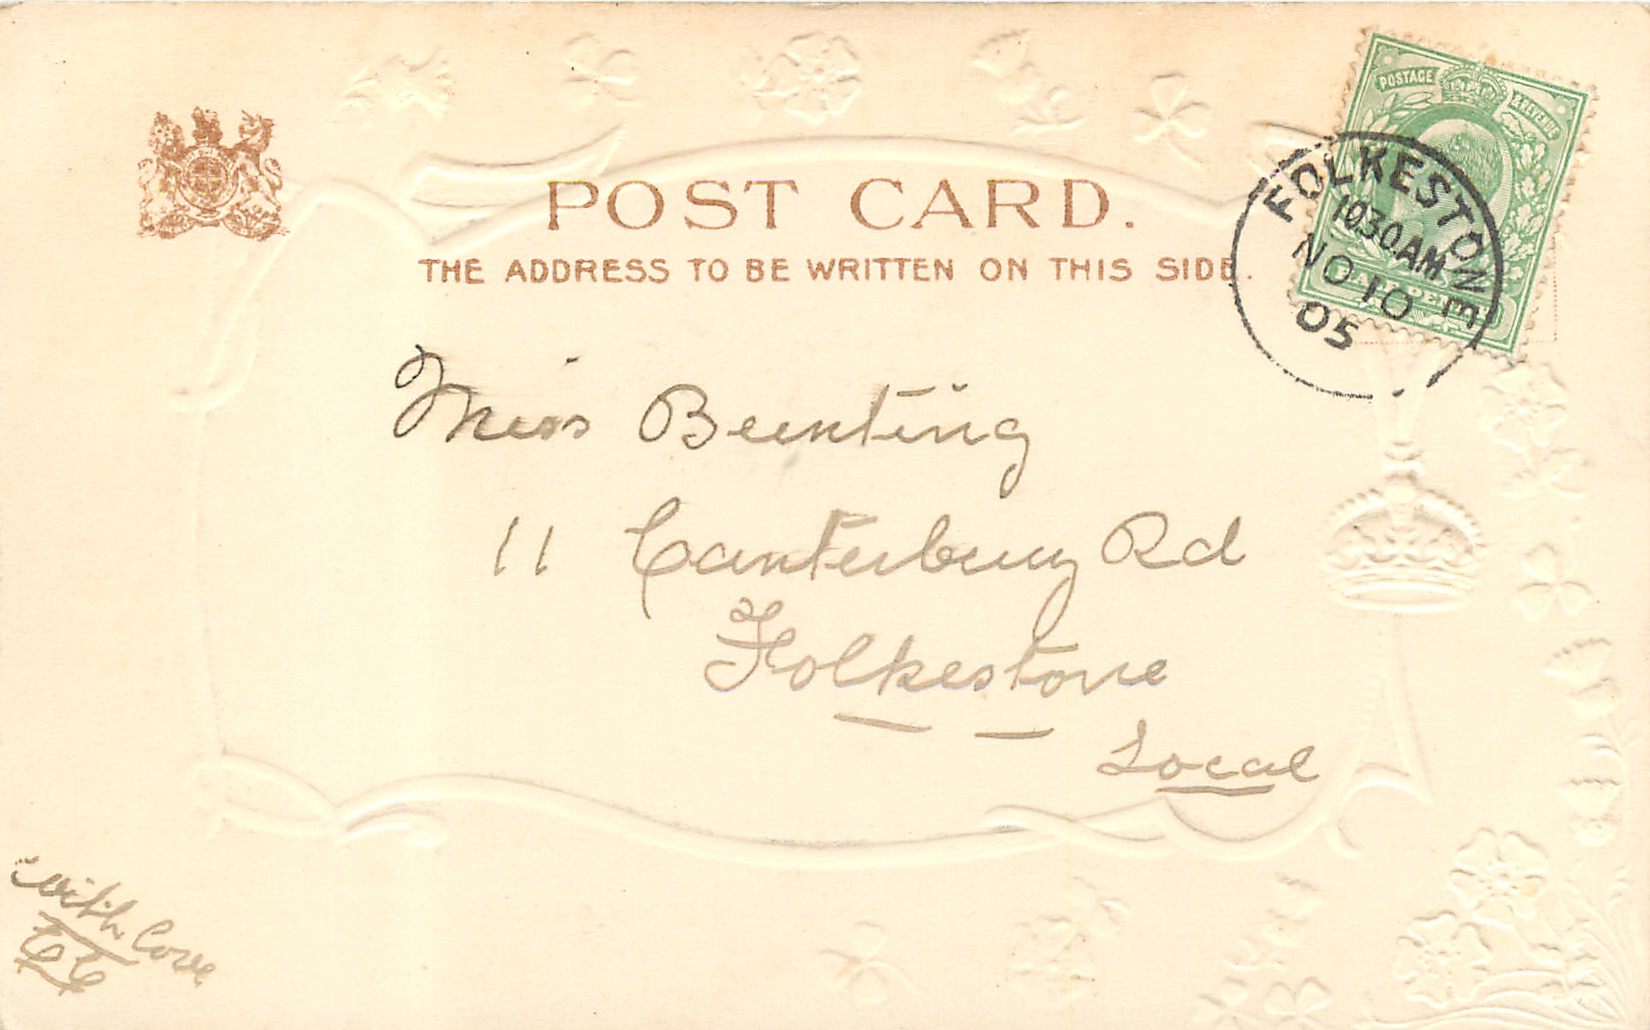 POST CARD.
THE ADDRESS TO BE WRITTEN ON THIS SIDE.
POSTAGE & REVENUE
FOLKESTONE
1030AM
NO 10
05
Miss Bunting
11 Canterbury Rd
Folkestone
Local
with love